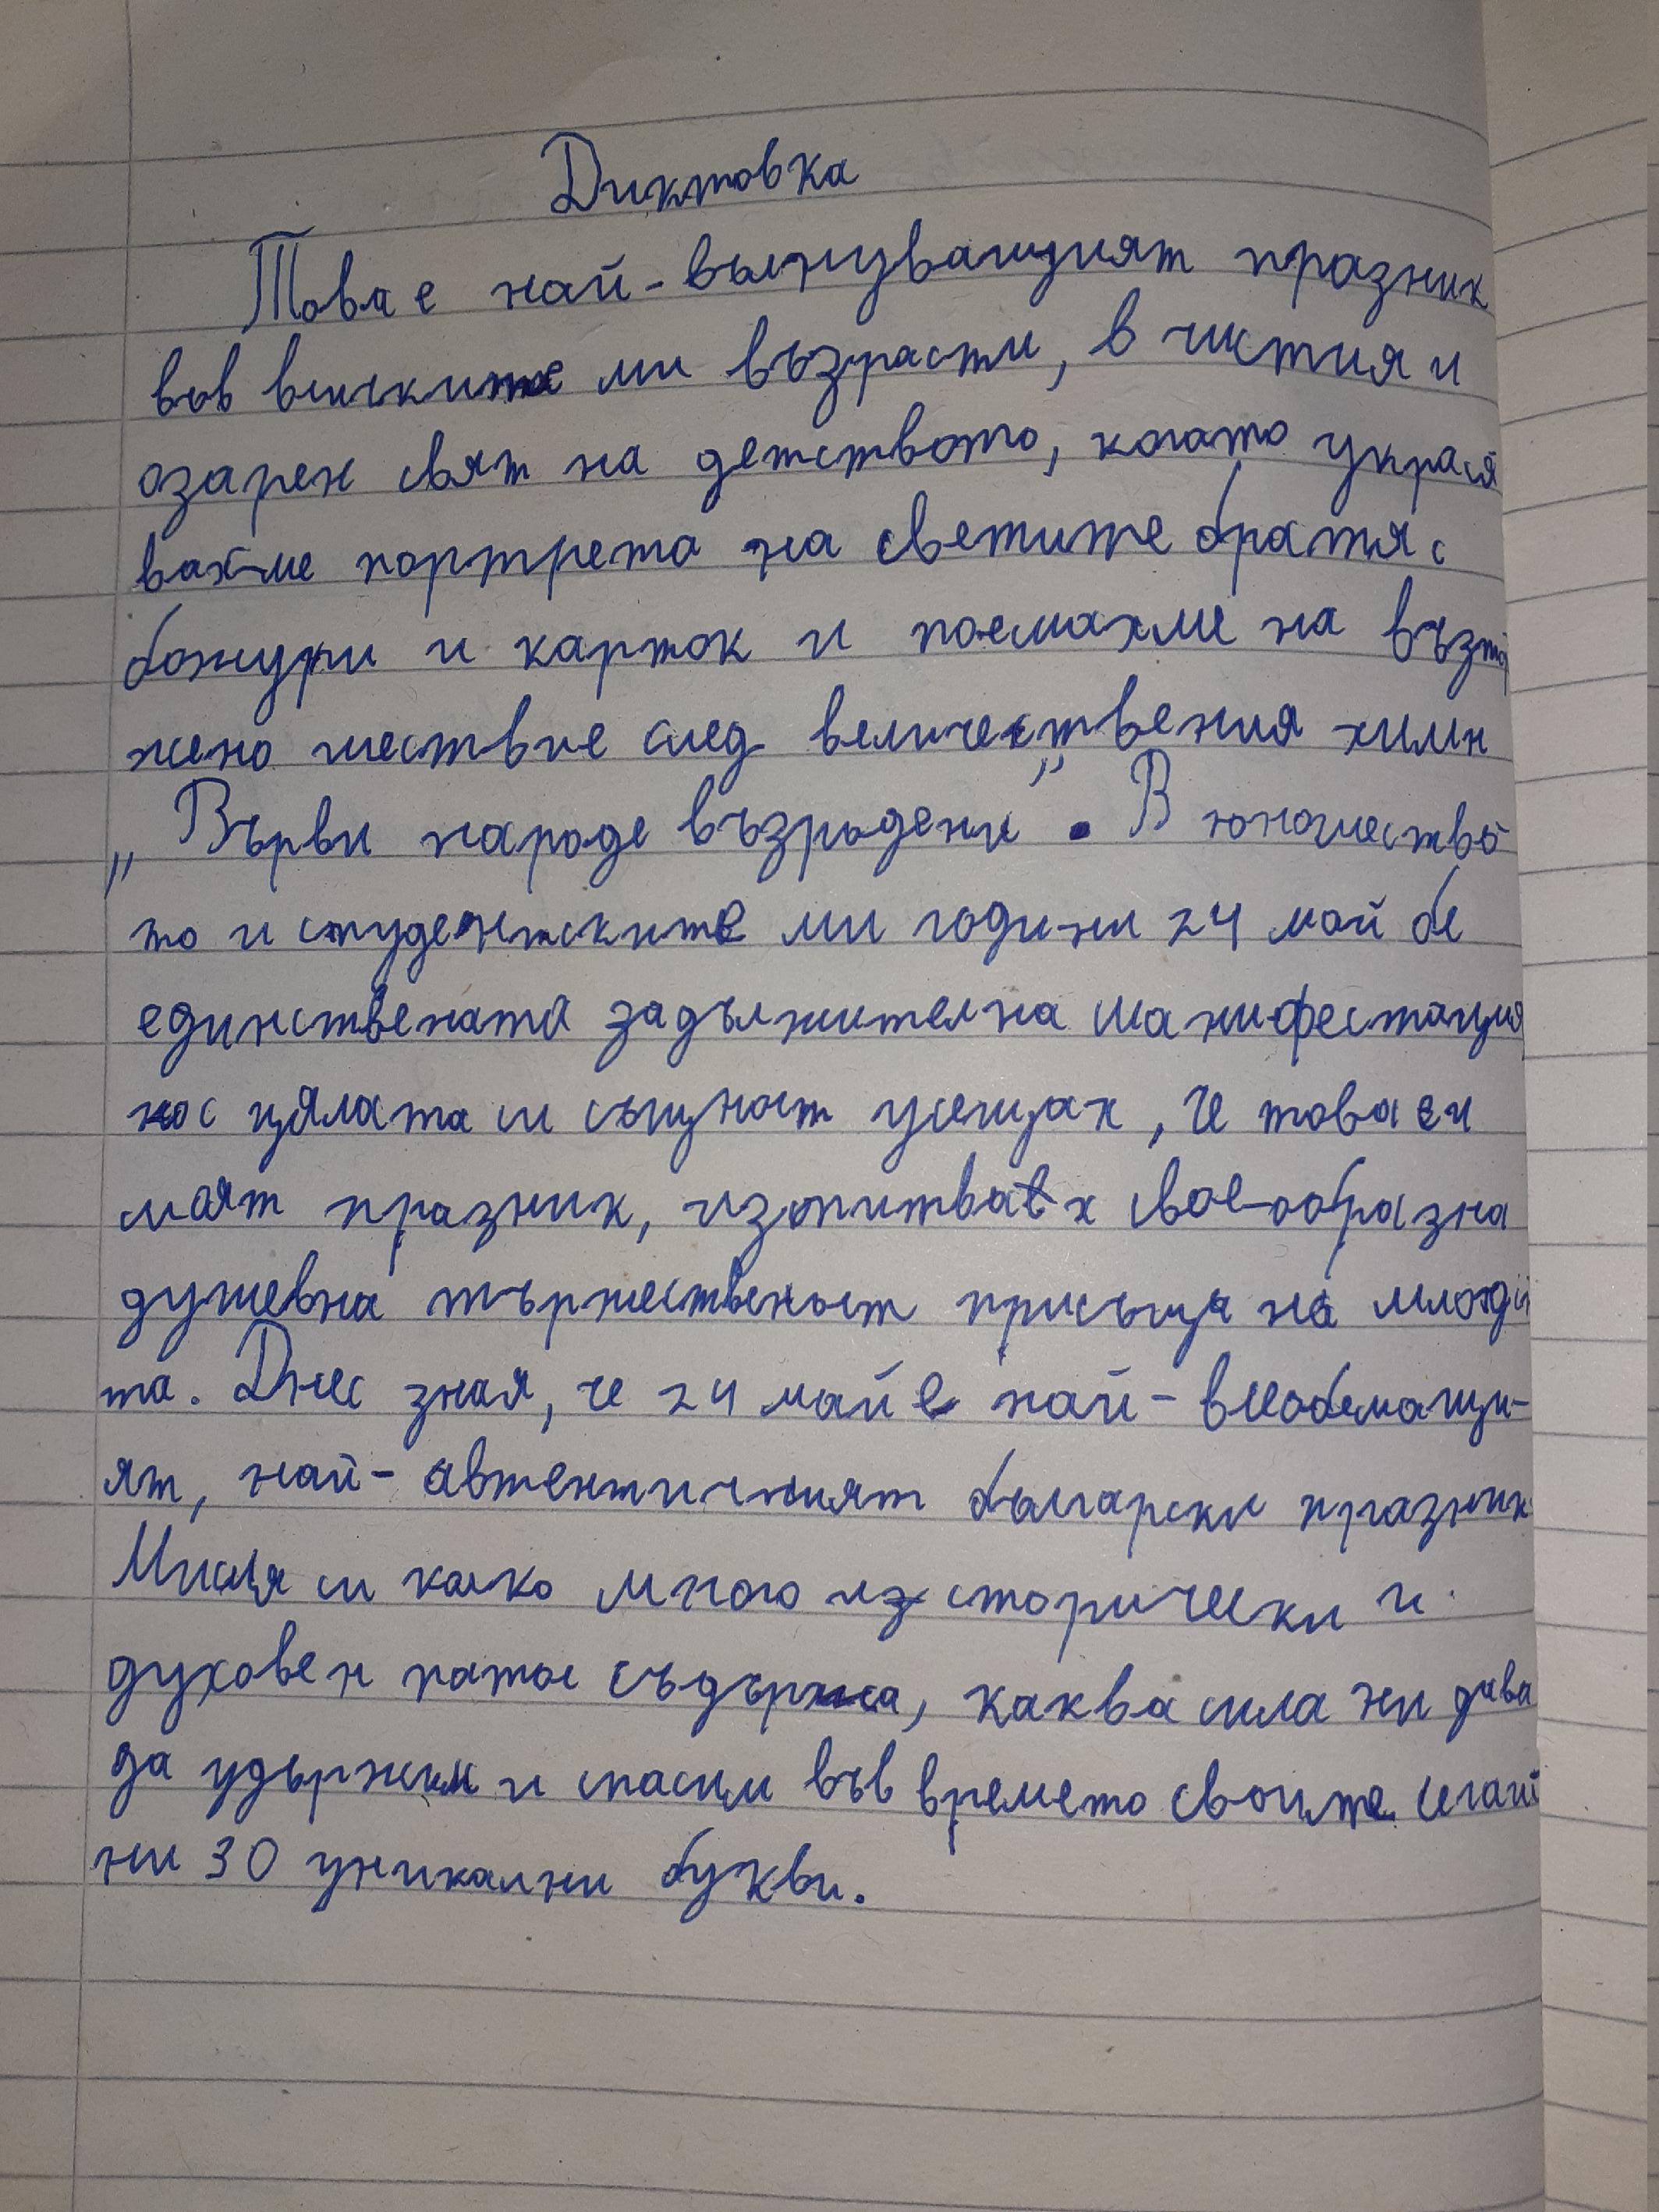 Диктовка
Това е най-вълнуващият празник
във всичките ми възрасти, в чистия и
озарен свят на детството, когато украся
вахме портрета на светите братя с
божури и карток и поемахме на възтор
жено шествие след величествения химн
„Върви народе възродени“. В юношество
то и студентските ми години 24 май бе
единствената задължителна манифестация
но с цялата си същност усещах, че това е и
моят празник, изпитвах своеобразна
душевна тържественост присъща на младос
та. Днес зная, че 24 май е най-всеобемащи-
ят, най-автентичният български празник
Мисля си колко много исторически и
духовен патос съдържа, каква сила ни дава
да удържим и спасим във времето своите сегаш
ни 30 уникални букви.